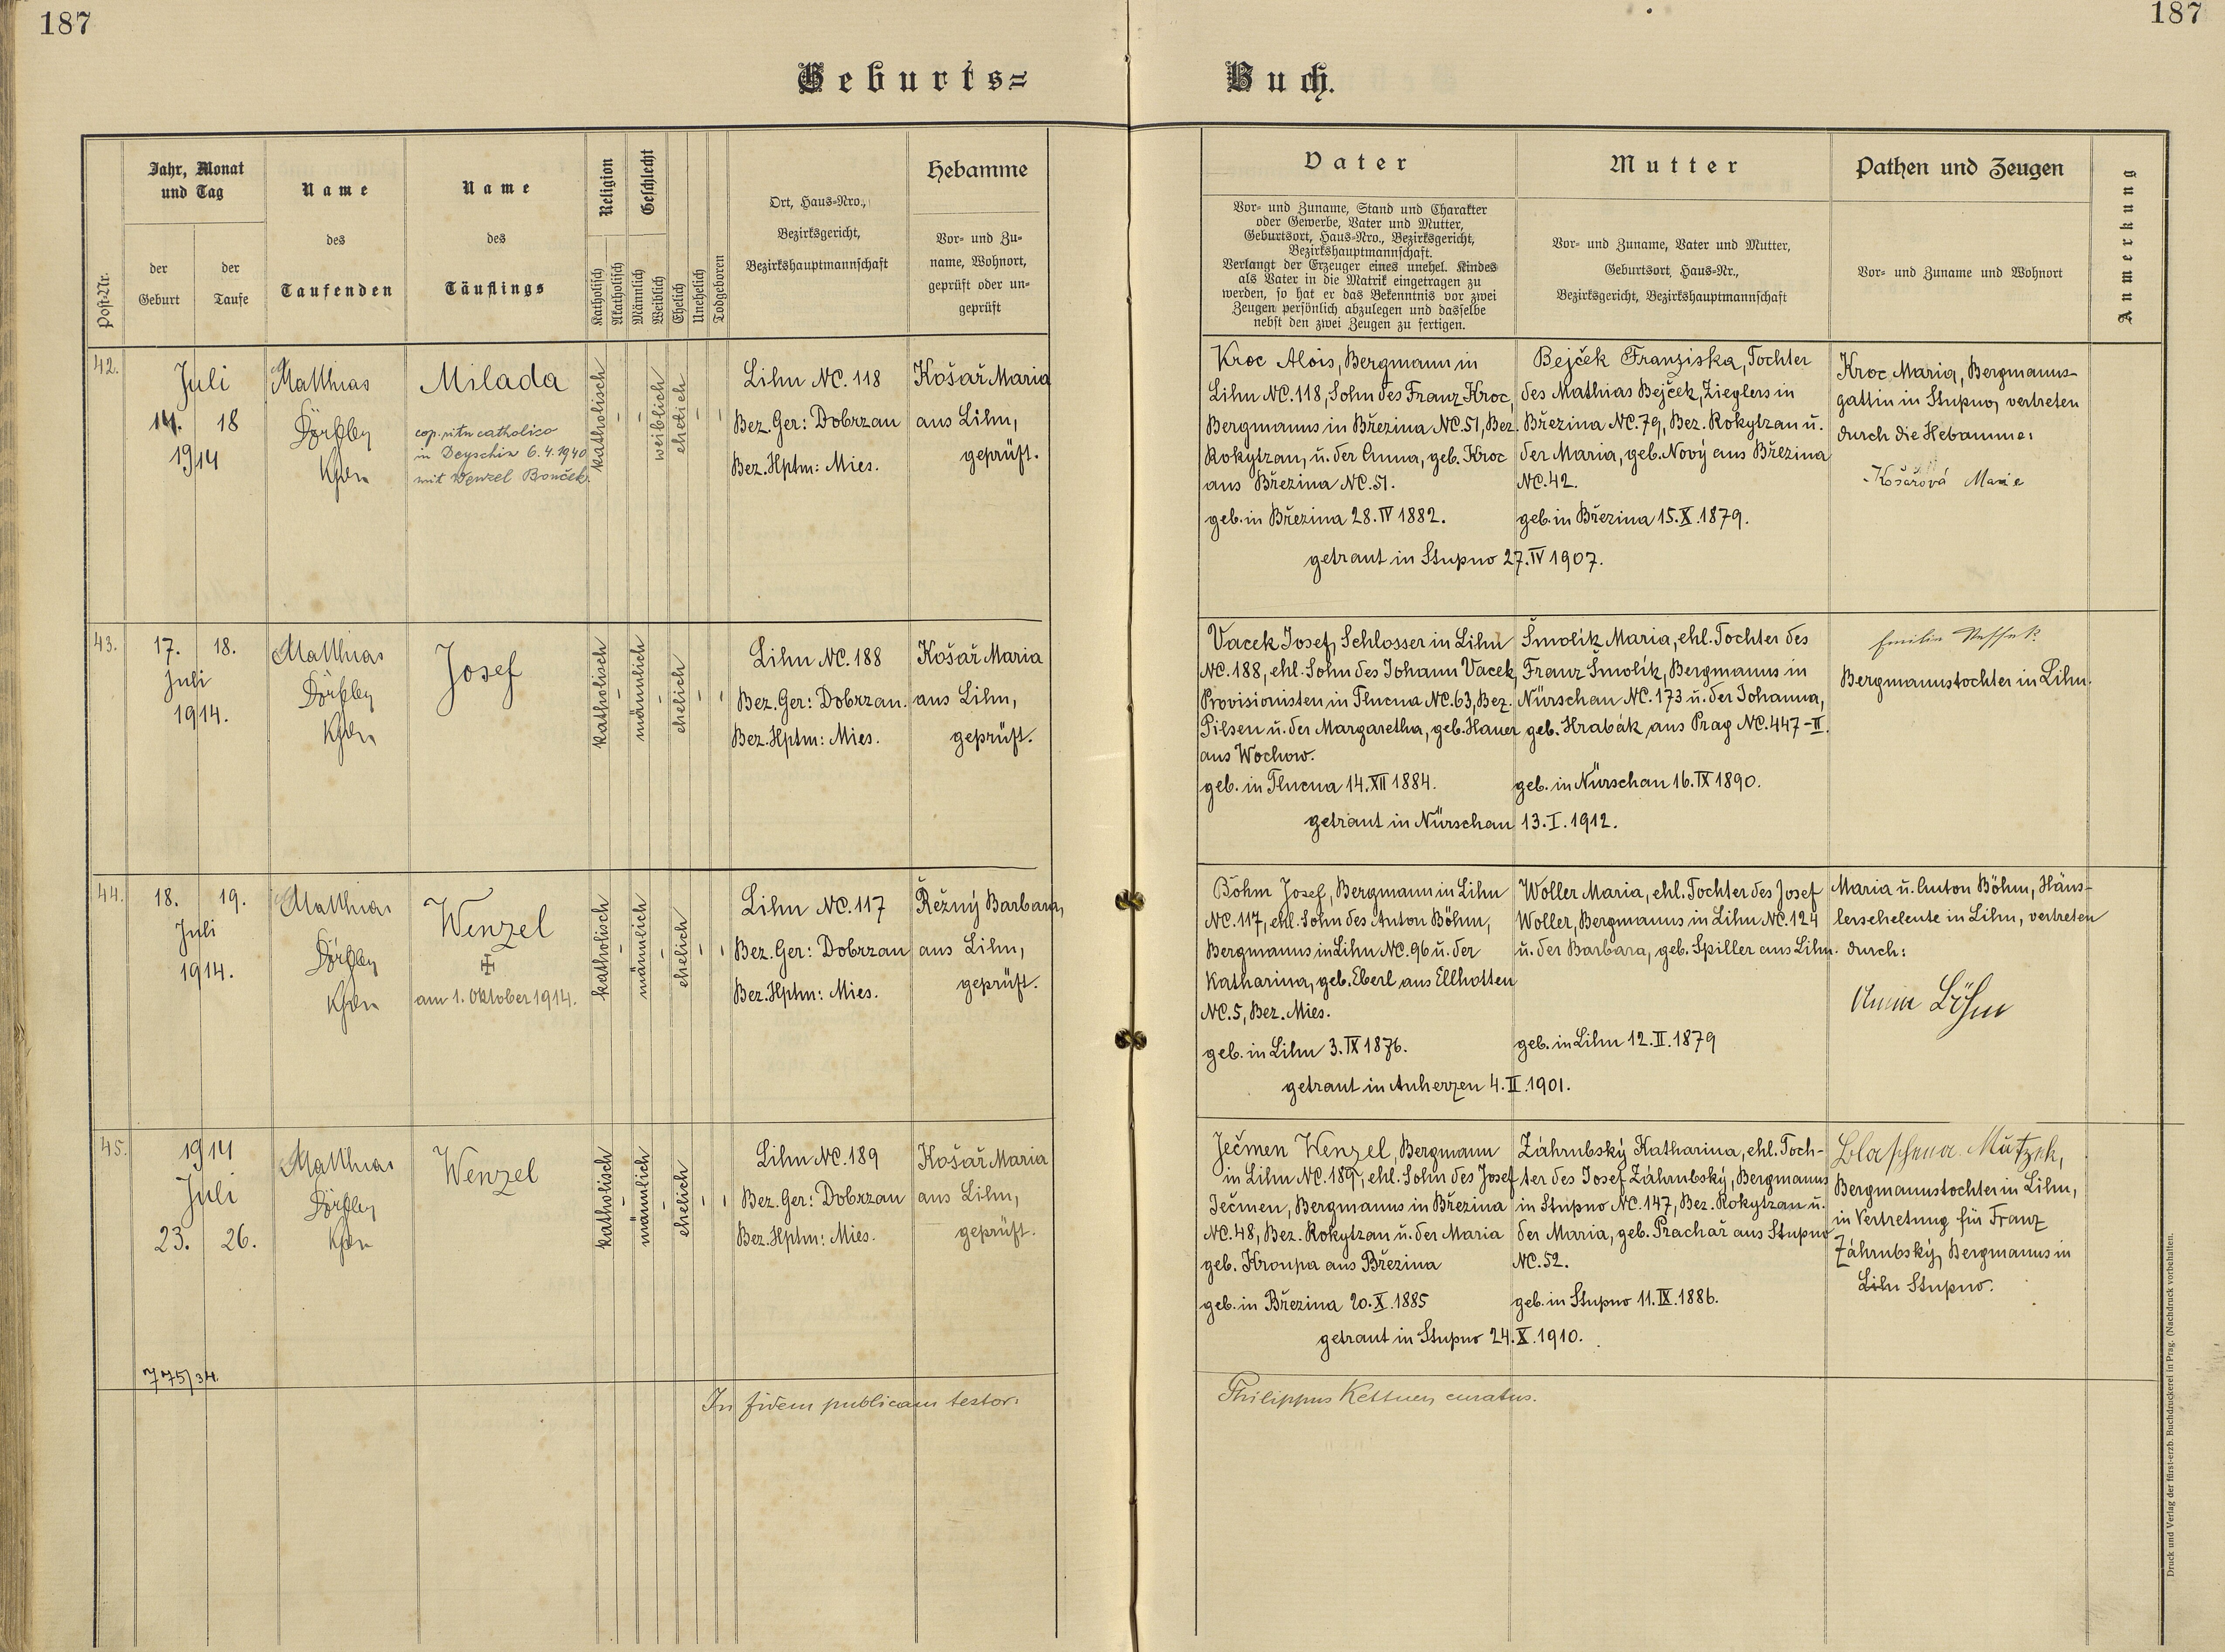 187
187
Geburts=
Buch.
Post-Nr.
Jahr, Monat
und Tag
der
Geburt
der
Taufe
Name
des
Taufenden
Name
des
Täuflings
Religion
Katholisch
Akatholisch
Geschlecht
Männlich
Weiblich
Ehelich
Unehelich
Todgeboren
Ort, Haus=Nro.,
Bezirksgericht,
Bezirkshauptmannschaft
Hebamme
Vor= und Zu=
name, Wohnort,
geprüft oder un=
geprüft
Vater
Vor= und Zuname, Stand und Charakter
oder Gewerbe, Vater und Mutter,
Geburtsort, Haus=Nro., Bezirksgericht,
Bezirkshauptmannschaft.
Verlangt der Erzeuger eines unehel. Kindes
als Vater in die Matrik eingetragen zu
werden, so hat er das Bekenntnis vor zwei
Zeugen persönlich abzulegen und dasselbe
nebst den zwei Zeugen zu fertigen.
Mutter
Vor= und Zuname, Vater und Mutter,
Geburtsort, Haus=Nr.,
Bezirksgericht, Bezirkshauptmannschaft
Pathen und Zeugen
Vor= und Zuname und Wohnort
Anmerkung
42.
Juli
14. 18
1914
Matthias
Milada
cop. ritu catholico
in Deyschin 6.4.1940
mit Wenzel Bouček.
katholisch
-
-
weiblich
ehelich
-
-
Lihn NC. 118
Bez. Ger: Dobrzan
Bez. Hptm: Mies.
Košař Maria
aus Lihn,
geprüft.
Kroc Alois, Bergmann in
Lihn NC. 118, Sohn des Franz Kroc,
Bergmanns in Březina NC. 51, Bez.
Rokytzan, u. der Anna, geb. Kroc
aus Březina NC. 51.
geb. in Březina 28. IV 1882.
Bejček Franziska, Tochter
des Mathias Bejček, Zieglers in
Březina NC. 79, Bez. Rokytzan u.
der Maria, geb. Nový aus Březina
NC. 42.
geb. in Březina 15. X. 1879.
getraut in Stupno 27. IV 1907.
Kroc Maria, Bergmanns-
gattin in Stupno, vertreten
durch die Hebamme:
Košařová Marie
43.
17. 18.
Juli
1914.
Matthias
Josef
katholisch
-
männlich
-
ehelich
-
-
Lihn NC. 188
Bez. Ger: Dobrzan.
Bez. Hptm: Mies.
Košař Maria
aus Lihn,
geprüft.
Vacek Josef, Schlosser in Lihn
NC. 188, ehl. Sohn des Johann Vacek,
Provisionisten in Tlucna NC. 63, Bez.
Pilsen u. der Margaretha, geb. Hauer
aus Wochow.
geb. in Tlucna 14. XII 1884.
Šmolík Maria, ehl. Tochter des
Franz Šmolík, Bergmanns in
Nürschan NC. 173 u. der Johanna,
geb. Hrabák aus Prag NC. 447-II.
geb. in Nürschan 16. IX 1890.
getraut in Nürschan 13. I. 1912.
Emilie
Bergmannstochter in Lihn.
44.
18. 19.
Juli
1914.
Matthias
Wenzel
am 1. Oktober 1914.
katholisch
-
männlich
-
ehelich
-
-
Lihn NC. 117
Bez. Ger: Dobrzan
Bez. Hptm: Mies.
Řežný Barbara,
aus Lihn,
geprüft.
Böhm Josef, Bergmann in Lihn
NC. 117, ehl. Sohn des Anton Böhm,
Bergmanns in Lihn NC. 96 u. der
Katharina, geb. Eberl aus Ellhotten
NC. 5, Bez. Mies.
geb. in Lihn 3. IX 1876.
Woller Maria, ehl. Tochter des Josef
Woller, Bergmanns in Lihn NC. 124
u. der Barbara, geb. Spiller aus Lihn.
geb. in Lihn 12. II. 1879
getraut in Auherzen 4. II. 1901.
Maria u. Anton Böhm, Häus-
lerseheleute in Lihn, vertreten
durch:
Anna Böhm
45.
1914
Juli
23. 26.
Matthias
Wenzel
katholisch
-
männlich
-
ehelich
-
-
Lihn NC. 189
Bez. Ger: Dobrzan
Bez. Hptm: Mies.
Košař Maria
aus Lihn,
geprüft.
Ječmen Wenzel, Bergmann
in Lihn NC. 189, ehl. Sohn des Josef
Ječmen, Bergmanns in Březina
NC. 48, Bez. Rokytzan u. der Maria
geb. Kroupa aus Březina
geb. in Březina 20. X. 1885
Záhrubský Katharina, ehl. Toch-
ter des Josef Záhrubský, Bergmanns
in Stupno NC. 147, Bez. Rokytzan u.
der Maria, geb. Prachař aus Stupno
NC. 52.
geb. in Stupno 11. IX. 1886.
getraut in Stupno 24. X. 1910.
Bergmannstochter in Lihn,
in Vertretung für Franz
Záhrubský, Bergmanns in
Lihn Stupno.
775/34.
In fidem publicam testor:
Philippus Kettner, curatus.
Druck und Verlag der fürst-erzb. Buchdruckerei in Prag. (Nachdruck vorbehalten.